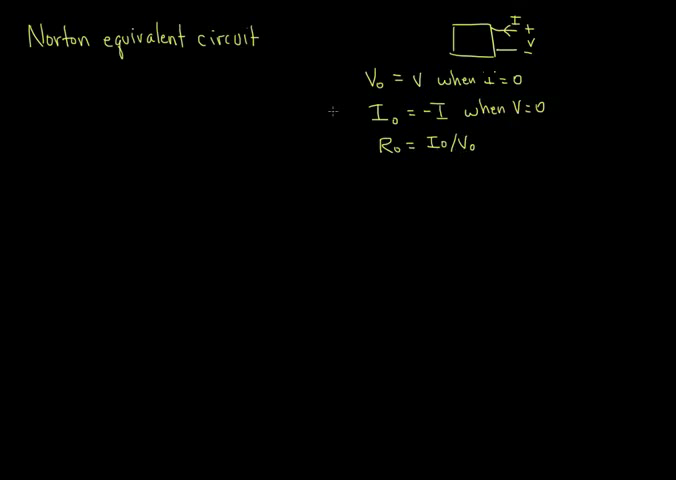 Norton equivalent circuit
I
+
V
-
V₀ = V when i = 0
I₀ = -I when V=0
R₀ = I₀/V₀